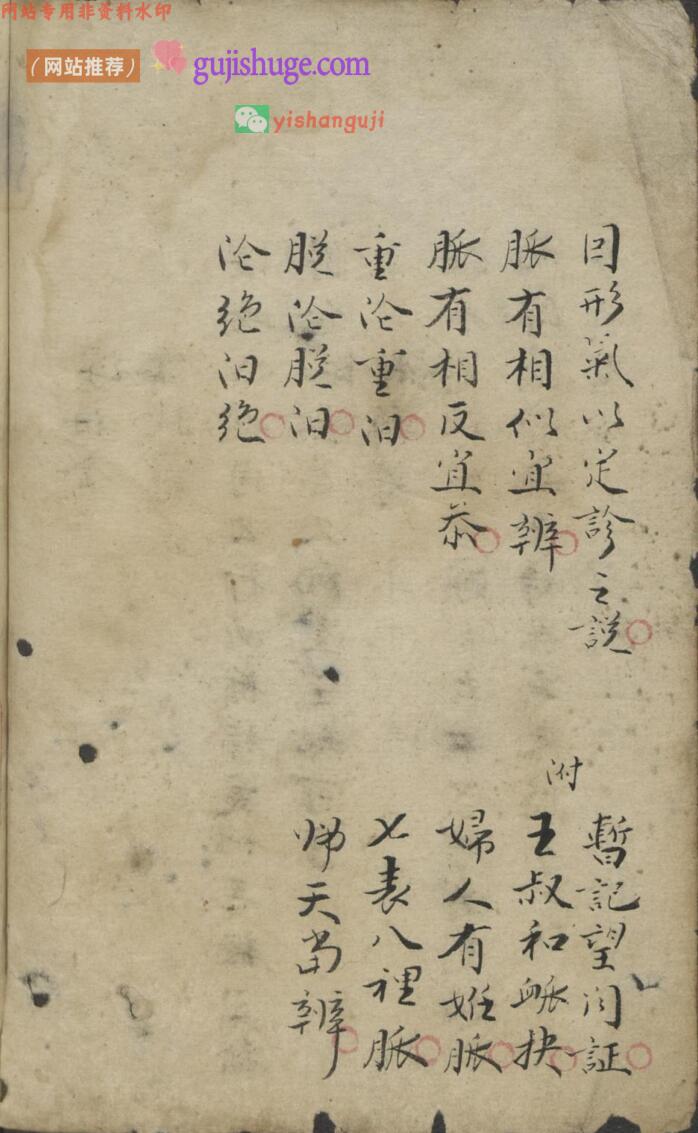 网站专用非资料水印
(网站推荐) gujishuge.com
yishanguji
因形氣以定診之說
脈有相似宜辨
脈有相反宜叅
重沦重汨
脱沦脱汨
沦絶汨絶
暫記望问証
附
王叔和脈抉
婦人有姙脈
七表八裡脈
师天当辨